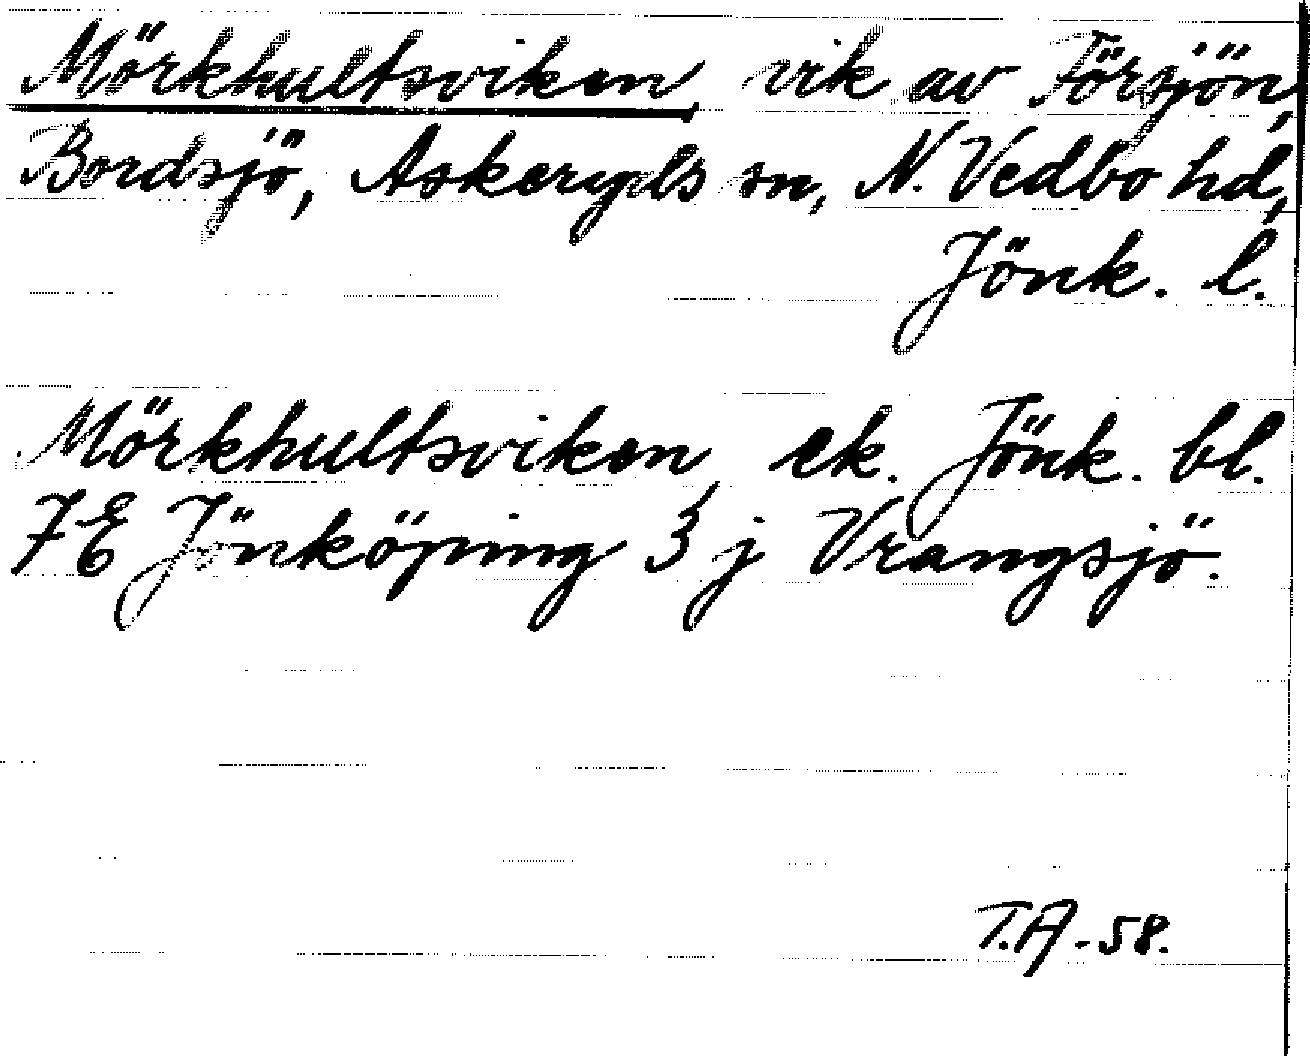 Mörkhultsviken vik av Försjön,
Bordsjö, Askeryds sn, N. Vedbo hd,
Jönk. l.
Mörkhultsviken ek. Jönk. bl.
7E Jönköping 3 j Vrangsjö.
T.A -58.